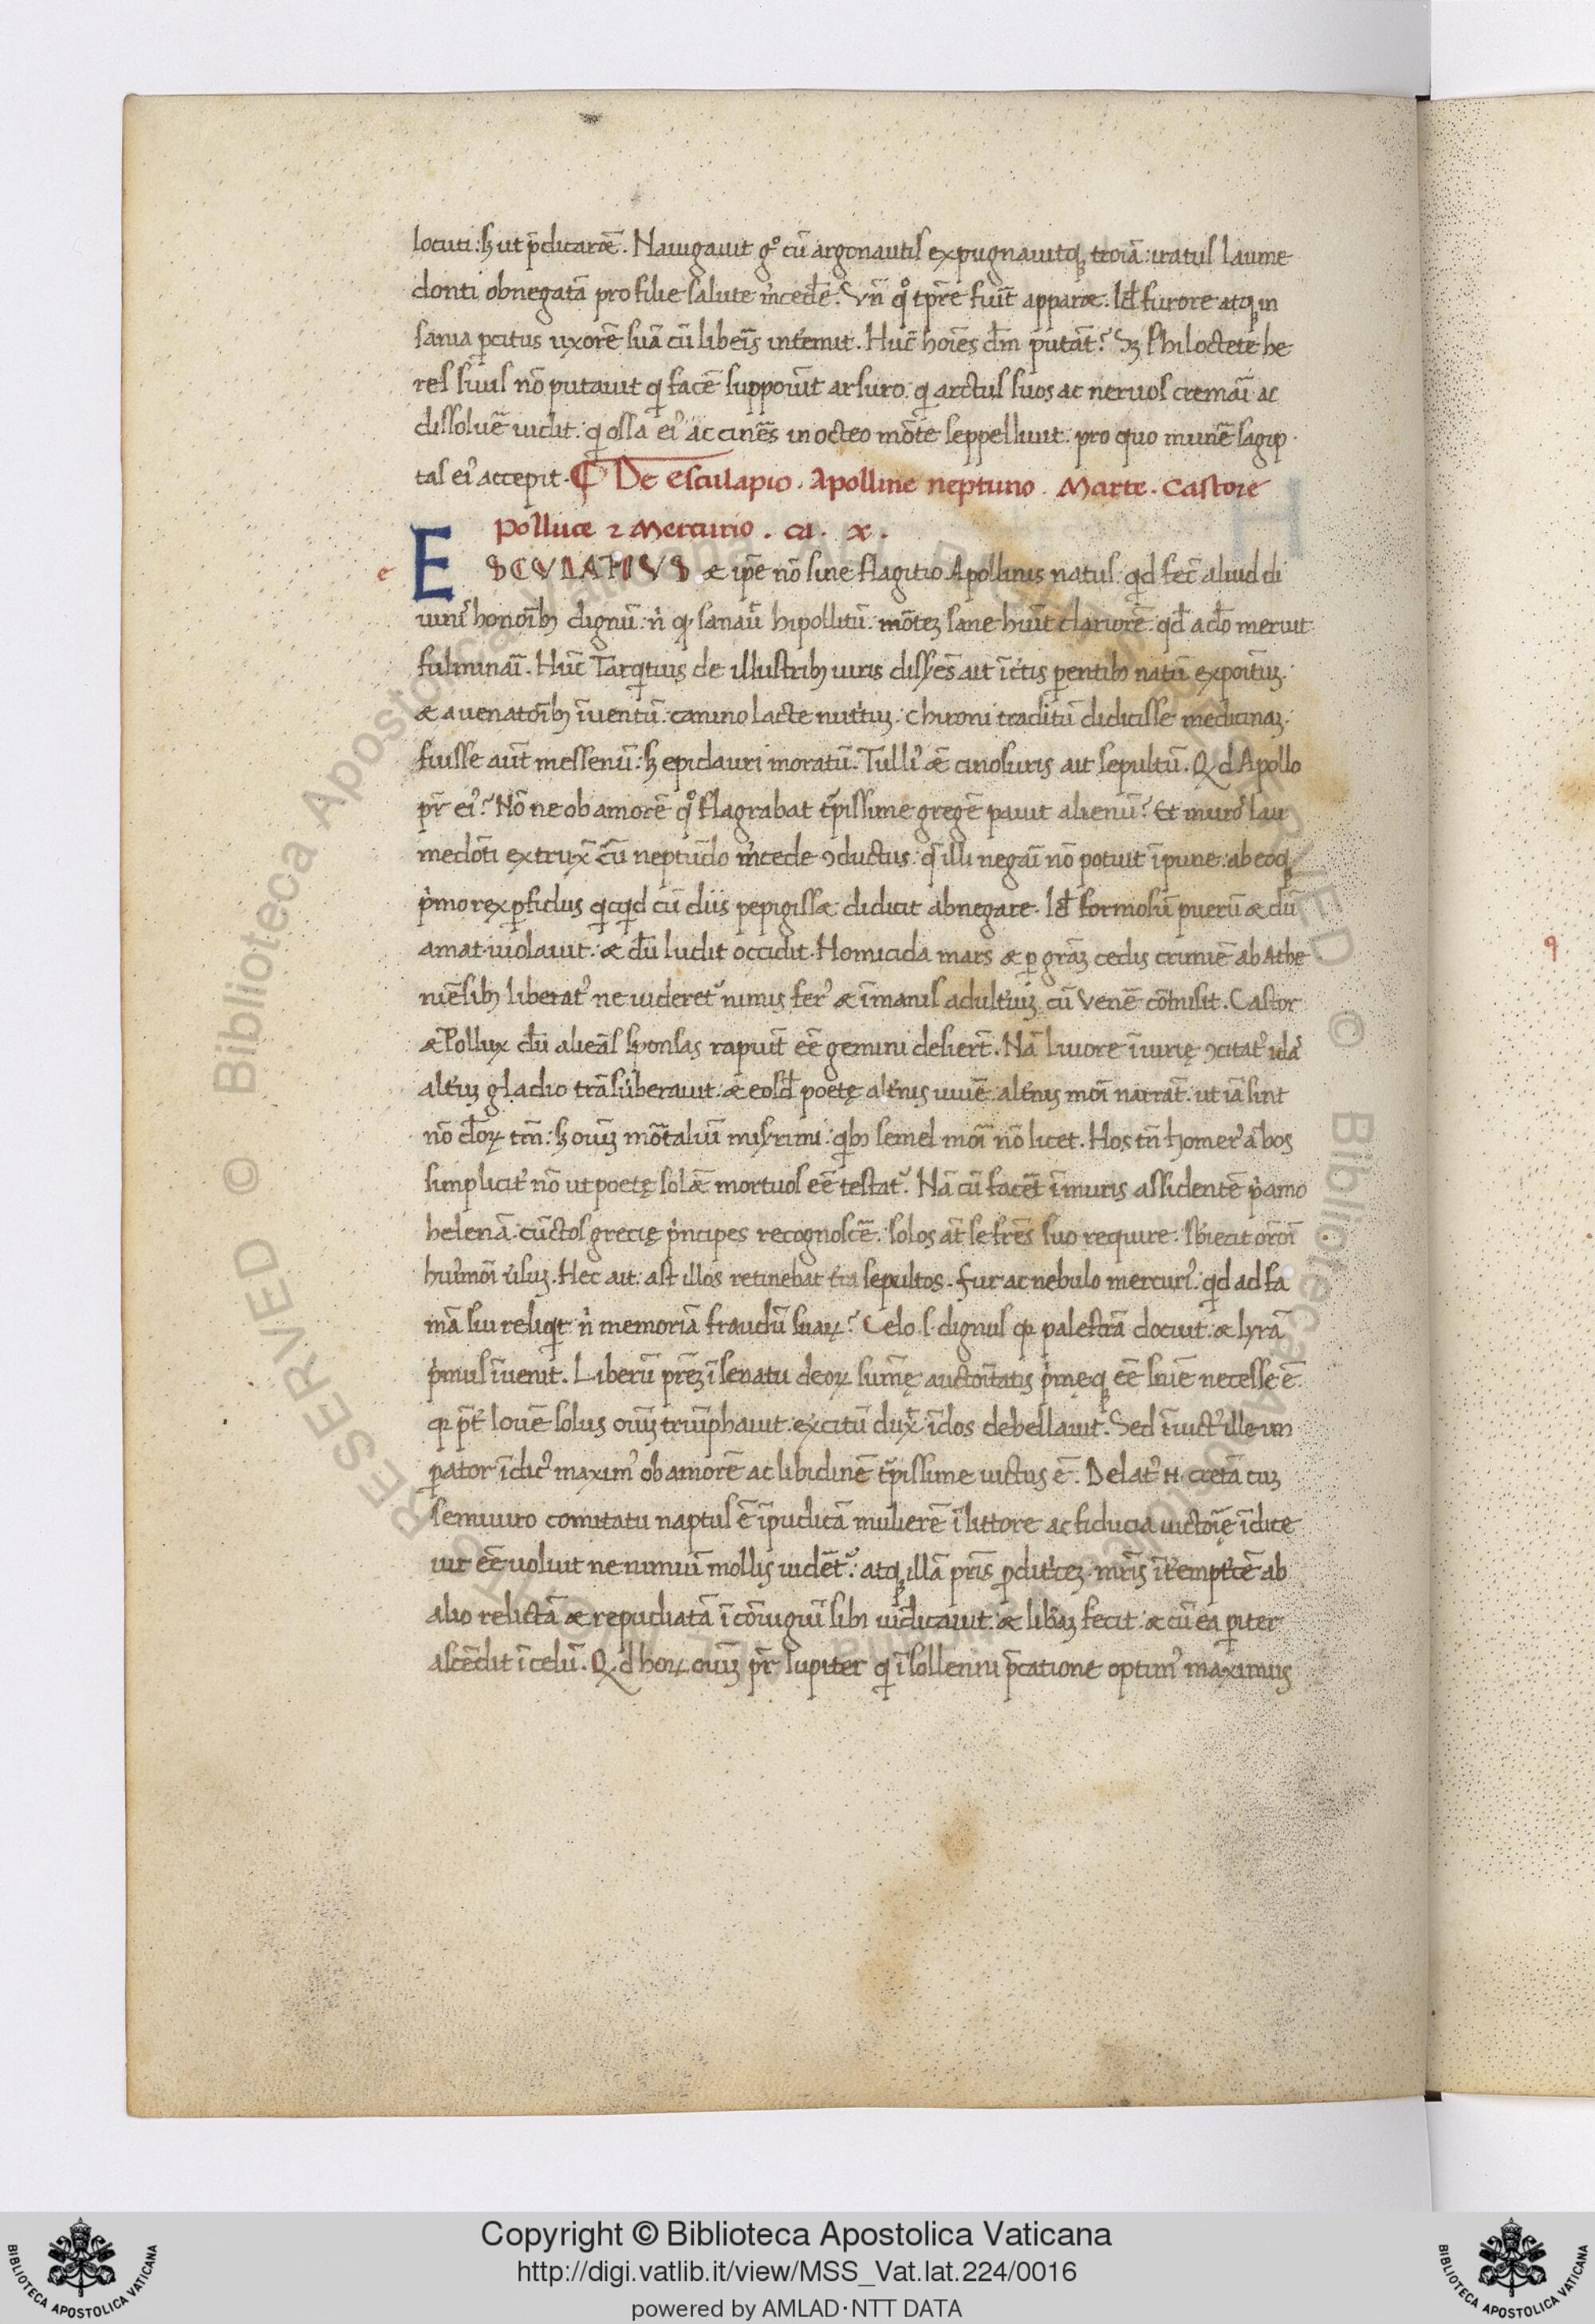 locuti: ꝫ ut p̄dicarēt. Nauigauit gͦ cū argonautis expugnauitqꝫ troiā: iratus laume
donti obnegatā pro filie salute m̓cedē. Vn̄ qͦ tp̄re fuīt apparæ. Id̄ furore atqꝫ in
sania ꝑcitus uxorē suā cū libeīs int̓emit. Hūc hoīes d̄m putāt? Sꝫ Philoctetes he
res suus nō putauit q̇ facē suppoīuit arsuro. q̇ arctus suos ac neruos cremaī ac
dissoluē uidit: q̇ ossa ei᾽ ac cinēs in octeo mōte seppelliuit. pro quo munē sagip
tas ei᾽ accepit. ₵ De esculapio. Apolline neptuno. Marte. Castore
Polluce ⁊ Mercurio. ca. x.
e ESCULAPIUS æ ip̄e nō sine flagitio Apollinis natus: qd fec̄ aliud di
uinis᾽ honoīb; dignū: n̓ qꝫ sanauit hipollitū. mōteꝫ sane huīt clariorē: qd̄ a dō meruit
fulminaī. Hūc Tarq̇tius de illustrib; uiris disserēs ait īc̓tis parentib; natū expoītuꝫ.
æ a uenatoīb; īuentū: canino lacte nut̓tuꝫ: chironi traditū didicisse medicinaꝫ:
fuisse aūt messenū: ꝫ epidauri moratū. Tulli᾽ ǣ cinosuris ait sepultū. Qd Apollo
pr̄ ei᾽? Nō ne ob amorē qͦ flagrabat tᷣpissime gregē pauit alienū? Et muros lau
medōti extrux̄ cū neptūdo m̓cede ꝯductus: q̄ illi negaī nō potuit īpune: ab eoqꝫ
p̓mo rex ꝑfidus qͥcqͥd cū diis pepigissæ didicit abnegare. Id̄ formosū puerū æ dū
amat uiolauit: æ dū ludit occidit. Homicida mars æ ꝑ grāꝫ cedis crimiē ab Athe
niēsib; liberat᾽ ne uideret᷑ nimis fer᾽ æ īmanis adult̓iuꝫ cū Venē cōmisit. Castor
æ Pollux dū alieās sponsas rapiūt eē gemini desiert̄. Nā liuore īiurię ꝯcitat᾽ idas᾽
alt̓uꝫ gladio trāsūberauit: æ eosd̄ poetę alt̓nis uiuē. alt̓nis moī narrāt: ut iā sint
nō d̄oꝝ tm̄: ꝫ oīuꝫ mōtaliū miserimi: qͥb; semel moī nō licet. Hos tn̄ homer᾽ ābos
simplicit̓ nō ut poetę solēt mortuos eē testat᷑. Nā cū facēt īmuris assidentē p̓amo
helenā cūctos grecię p̓ncipes recognoscē: solos at̄ se frēs suo require. Sbiecit orōī
hui᾽moī usuꝫ. Hec ait: ast illos retinebat t̄ra sepultos. Fur ac nebulo mercuri᾽: qd ad fa
mā sui reliqͥt n̓ memoriā fraudū suaꝝ? Celo .s. dignus qꝫ palestrā docuit: æ lyrā
p̓mus īuenit. Liberū pr̄eꝫ ī senatu deoꝝ sūmę auctoītatis p̓męqꝫ eē sniē necesse ē.
qꝫ pt̄ Iouē solus oīuꝫ triūphauit. excitū dux̄: īdos debellauit. Sed īuict᾽ ille im
ꝑator īdic᾽ maxim᾽ ob amorē ac libidinē tᷣpissime uictus ē. Delat᾽ n̄ cretā cuꝫ
semiuiro comitatu naptus ē īpudicā mulierē ī littore ac fiducia uictoīę īdice
uir eē uoluit ne nimiū mollis uidēt᷑: atqꝫ illā pr̄is ꝓdit̓iceꝫ. mr̄is īt̓empt̓icē ab
alio relictā æ repudiatā ī coniugiū sibi uīdicauit: æ libaꝫ fecit: æ cū ea pariter
ascēdit ī celū. Qd hoꝝ oīuꝫ pr̄ Iupiter qͥ ī sollenni p̄catione optim᾽ maximus
Copyright © Biblioteca Apostolica Vaticana
http://digi.vatlib.it/view/MSS_Vat.lat.224/0016
powered by AMLAD·NTT DATA